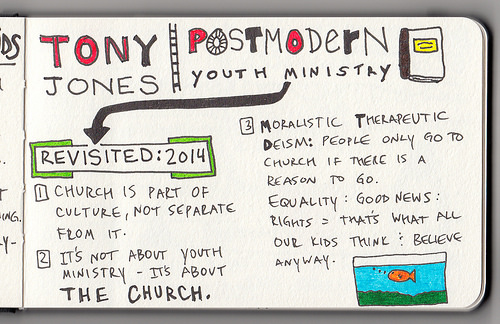 IDS
TONY
JONES
POSTMODERN
YOUTH MINISTRY
REVISITED: 2014
1 CHURCH IS PART OF
CULTURE, NOT SEPARATE
FROM IT.
2 IT'S NOT ABOUT YOUTH
MINISTRY - IT'S ABOUT
THE CHURCH.
3 MORALISTIC THERAPEUTIC
DEISM: PEOPLE ONLY GO TO
CHURCH IF THERE IS A
REASON TO GO.
EQUALITY: GOOD NEWS:
RIGHTS = THAT'S WHAT ALL
OUR KIDS THINK : BELIEVE
ANYWAY.